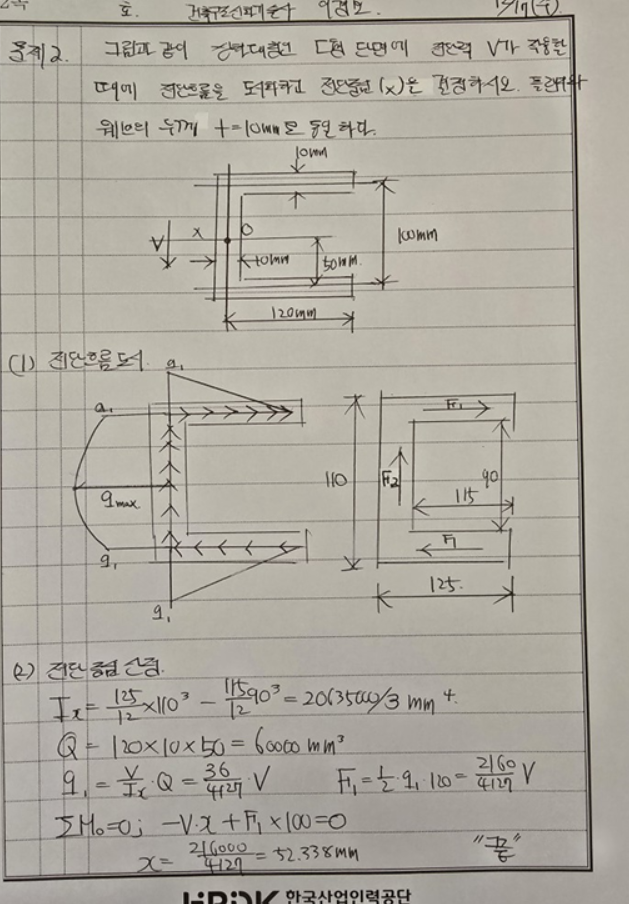 건축구조기술사
문제 2. 그림과 같이 상하대칭인 ㄷ형 단면에 전단력 V가 작용할
때에 전단흐름을 도시하고 전단중심(x)을 결정하시오. 플랜지와
웨브의 두께 t=10mm로 동일하다.
10mm
V
x
O
10mm
50mm.
100mm
120mm
(1) 전단흐름 도시.
q₁
q₁
qmax
q₁
q₁
110
F₁
F₂
90
115
F₁
125.
(2) 전단중심 산정.
Iₓ = 125/12 ×110³ - 115/12 90³ = 20635000/3 mm⁴.
Q = 120×10×50 = 60000 mm³
q₁ = V/Iₓ · Q = 36/4127 · V F₁ = 1/2 · q₁ · 120 = 2160/4127 V
ΣM₀=0; -V·x + F₁ ×100=0
x = 216000/4127 = 52.338mm "끝"
한국산업인력공단